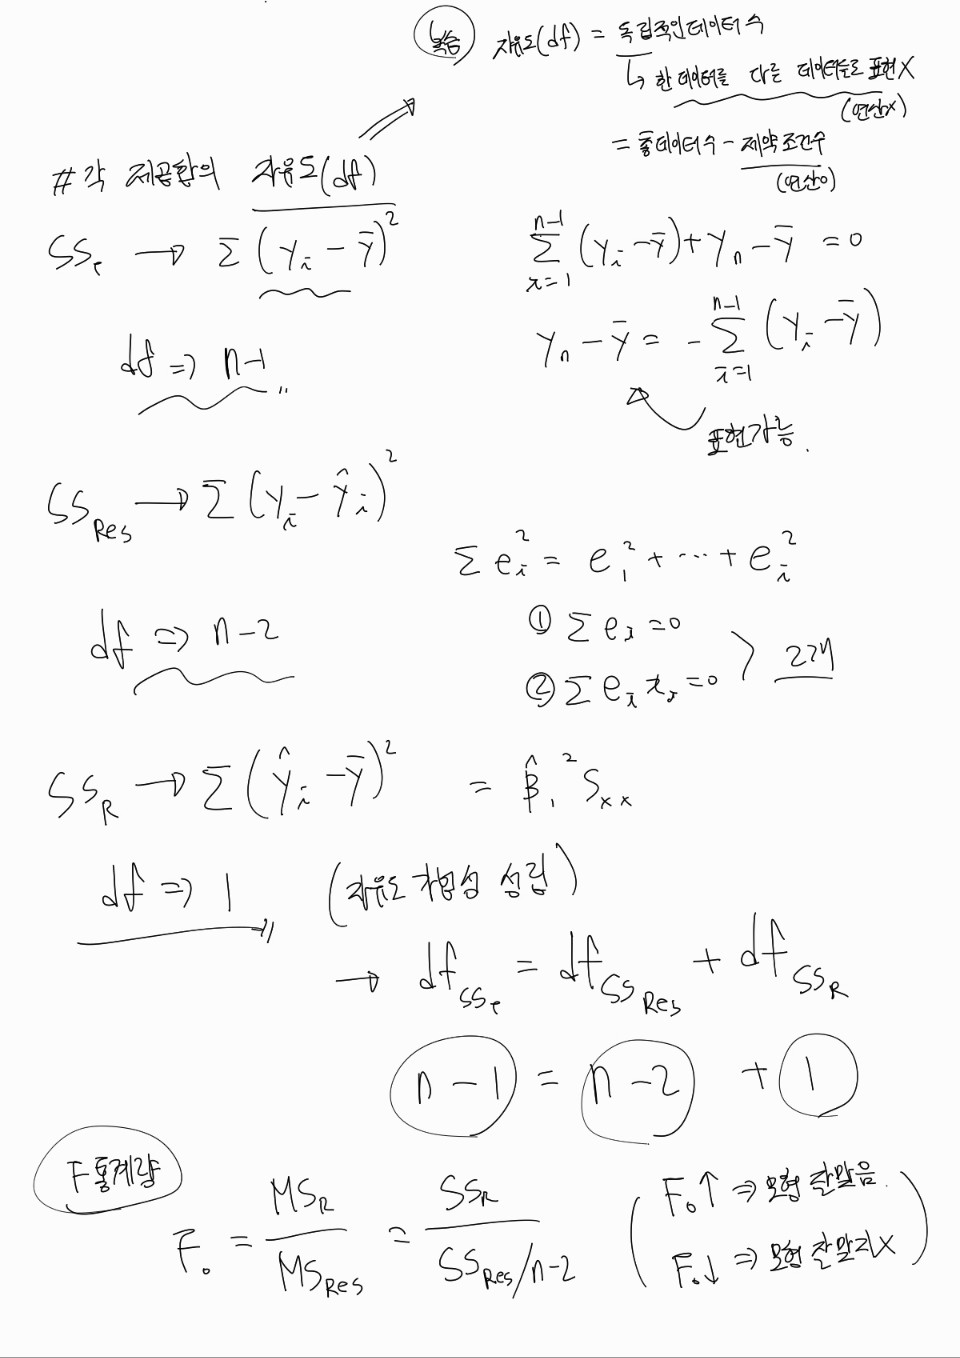 복습 자유도(df) = 독립적인 데이터 수
↳ 한 데이터를 다른 데이터들로 표현X
(연산X)
= 총 데이터 수 - 제약조건수
(연산O)
# 각 제곱합의 자유도(df)
SSₜ → Σ(yᵢ - ȳ)²
df ⇒ n-1
Σᵢ₌₁ⁿ⁻¹ (yᵢ - ȳ) + yₙ - ȳ = 0
yₙ - ȳ = - Σᵢ₌₁ⁿ⁻¹ (yᵢ - ȳ)
표현가능.
SS_Res → Σ(yᵢ - ŷᵢ)²
df ⇒ n-2
Σeᵢ² = e₁² + ⋯ + eᵢ²
① Σeᵢ = 0
② Σeᵢxᵢ = 0
> 2개
SS_R → Σ(ŷᵢ - ȳ)² = β̂₁² Sₓₓ
df ⇒ 1 (자유도 가법성 성립)
→ df_SSₜ = df_SS_Res + df_SS_R
n-1 = n-2 + 1
F통계량
F₀ = MS_R / MS_Res = SS_R / (SS_Res/n-2)
F₀↑ ⇒ 모형 잘맞음.
F₀↓ ⇒ 모형 잘맞지X